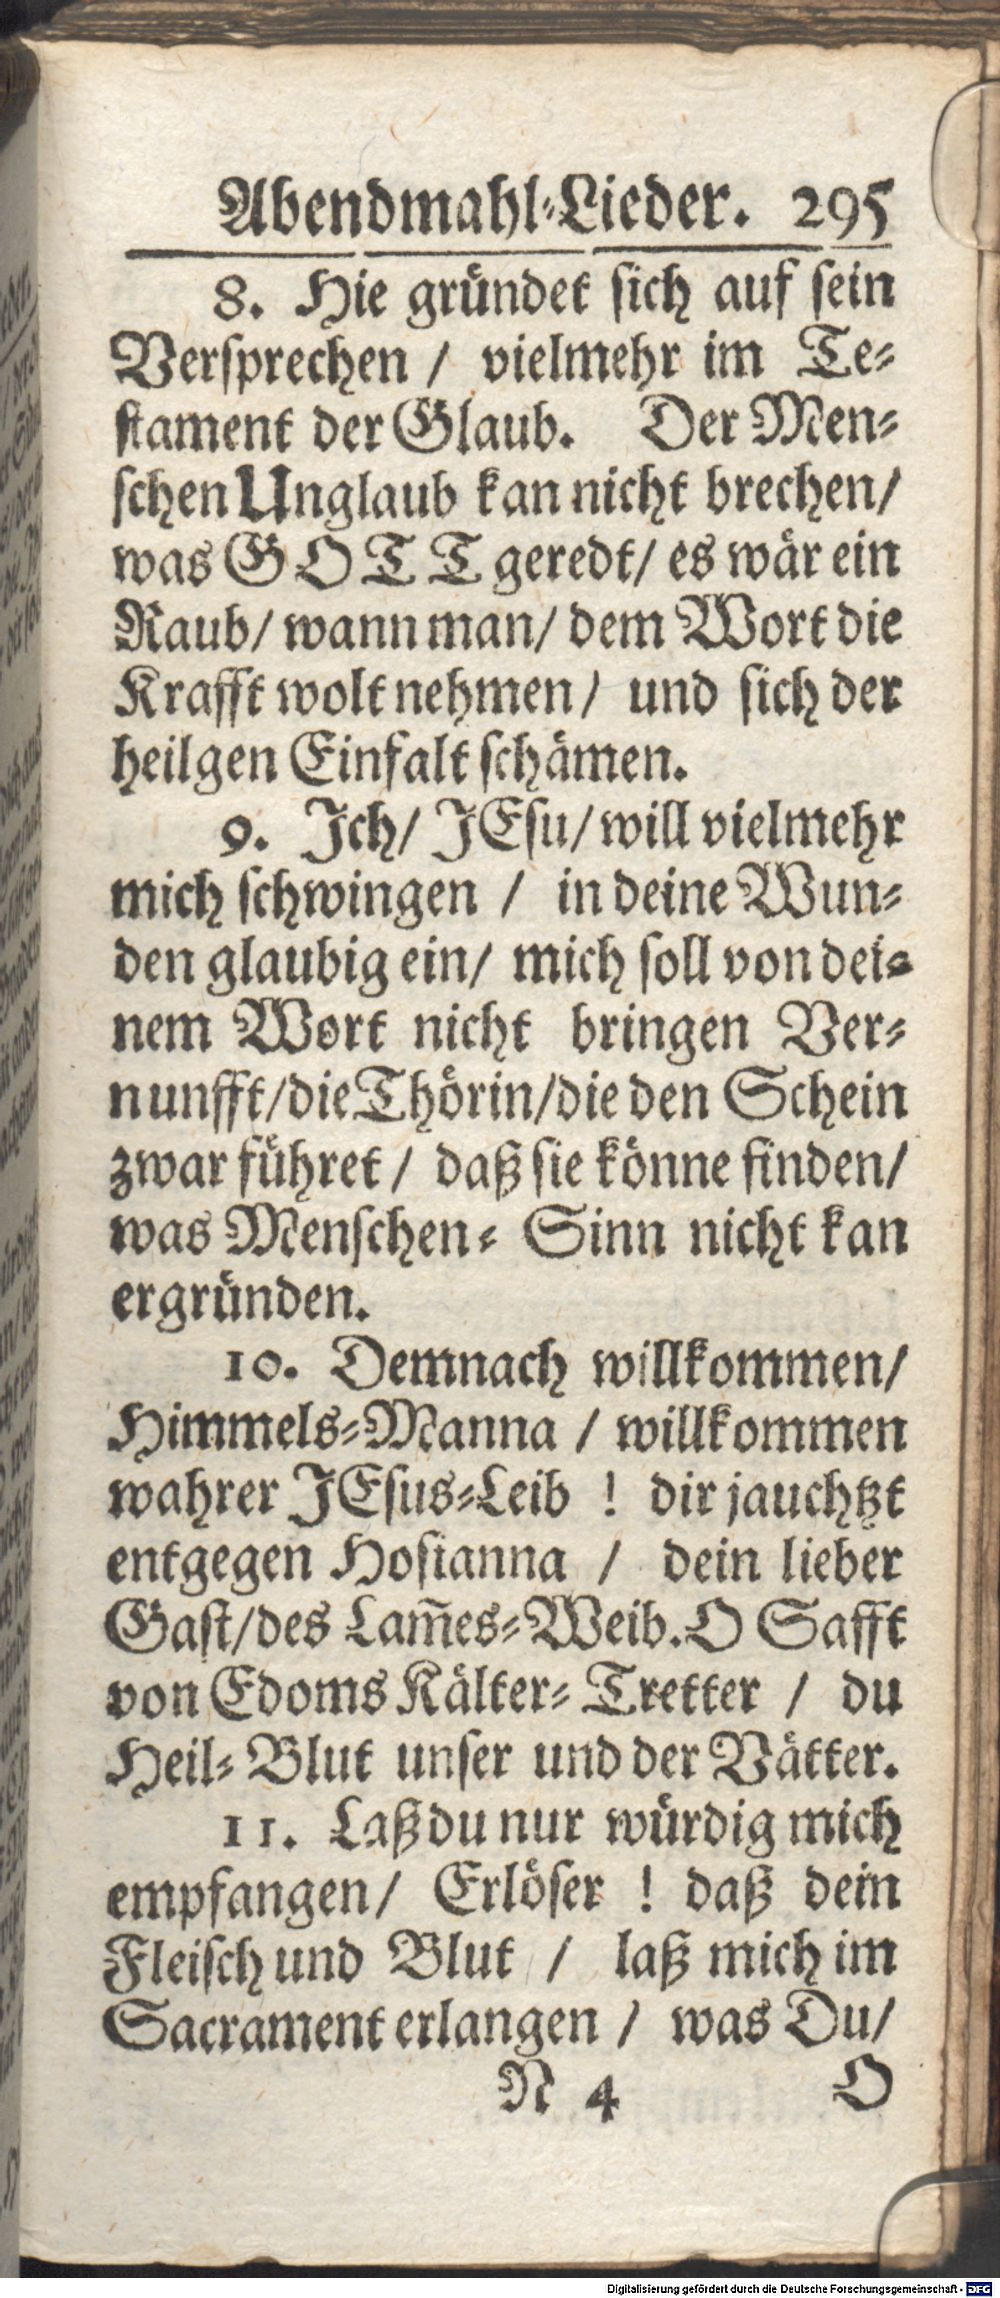 Abendmahl-Lieder. 295
8. Hie gründet sich auf sein
Versprechen / vielmehr im Te-
stament der Glaub. Der Men-
schen Unglaub kan nicht brechen/
was GOTT geredt/ es wär ein
Raub/ wann man/ dem Wort die
Krafft wolt nehmen/ und sich der
heilgen Einfalt schämen.
9. Ich/ JEsu/ will vielmehr
mich schwingen / in deine Wun-
den glaubig ein/ mich soll von dei-
nem Wort nicht bringen Ver-
nunfft/die Thörin/die den Schein
zwar führet / daß sie könne finden/
was Menschen-Sinn nicht kan
ergründen.
10. Demnach willkommen/
Himmels-Manna / willkommen
wahrer JEsus-Leib ! dir jauchtzt
entgegen Hosianna / dein lieber
Gast/des Lam̄es-Weib. O Safft
von Edoms Kälter-Tretter / du
Heil-Blut unser und der Vätter.
11. Laß du nur würdig mich
empfangen/ Erlöser ! daß dein
Fleisch und Blut / laß mich im
Sacrament erlangen / was Du/
N 4 O
Digitalisierung gefördert durch die Deutsche Forschungsgemeinschaft - DFG